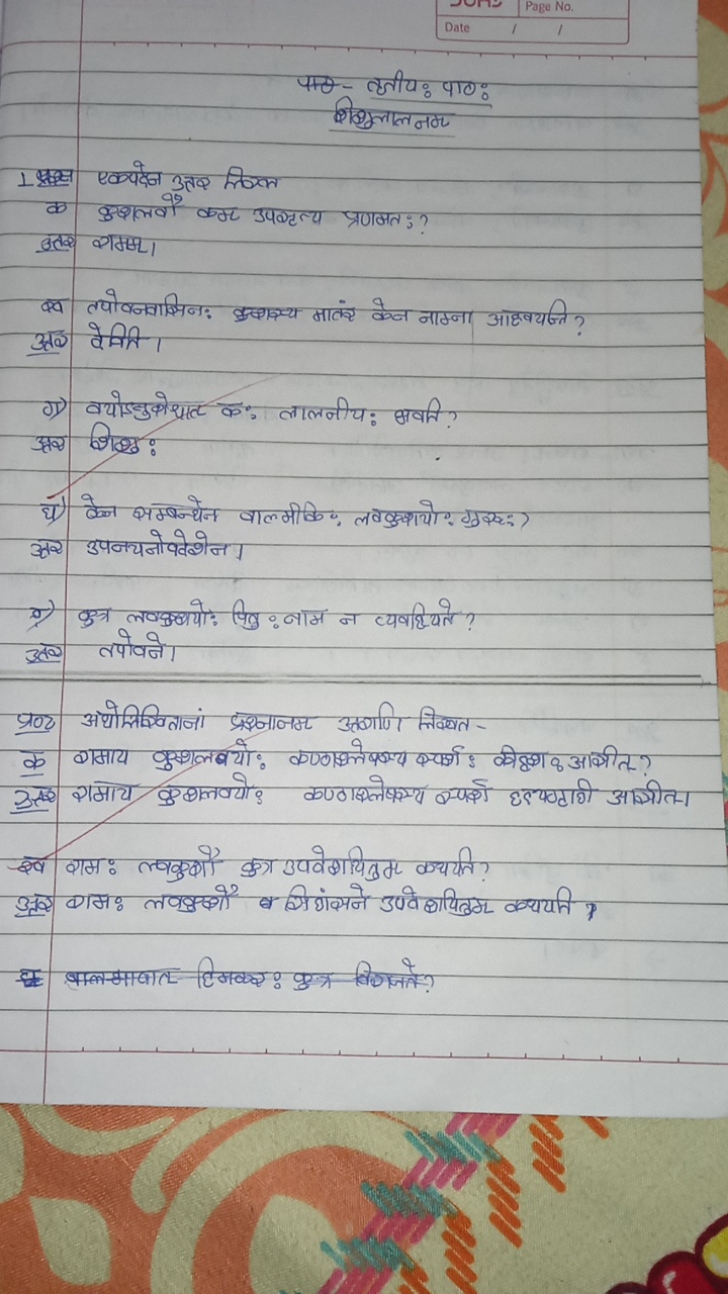 Page No.
Date / /
पाठ - तृतीयः पाठः
शिशुलालनम
1 प्रश्न एकपदेन उत्तर लिखत
क कुशलवौ कम उपसृत्य प्रणमतः?
उत्तर रामम।
ख तपोवनवासिनः कुशस्य मातरं केन नाम्ना आहवयन्ति?
उत्तर देविति।
ग) वयोऽनुरोधात कः लालनीयः भवति?
उत्तर शिशुः
घ) केन सम्बन्धेन वाल्मीकिः लवकुशयोः गुरुः?
उत्तर उपनयनोपदेशेन।
ङ) कुत्र लवकुशयोः पितुः नाम न व्यवह्रियते?
उत्तर तपोवने।
प्र०2 अधोलिखितानां प्रश्नानाम उत्तराणि लिखत -
क रामाय कुशलवयोः कण्ठाश्लेषस्य स्पर्शः कीदृशः आसीत?
उत्तर रामाय कुशलवयोः कण्ठाश्लेषस्य स्पर्श हृदयग्राही आसीत।
ख रामः लवकुशौ कुत्र उपवेशयितुम कथयति?
उत्तर रामः लवकुशौ सिंहासने उपवेशयितुम कथयति
बालभावात हिमकरः कुत्र विराजते?